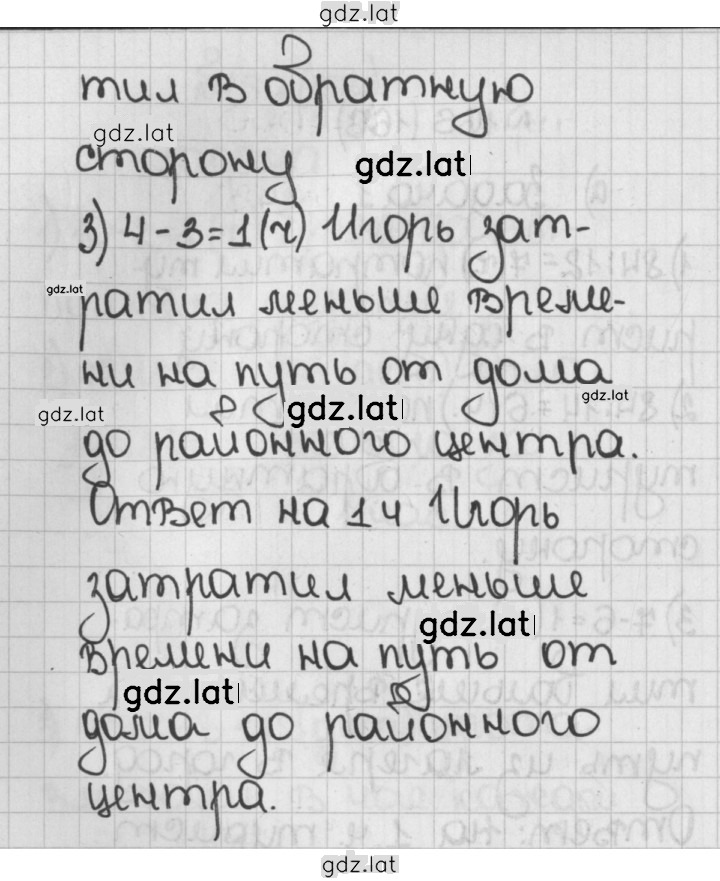 gdz.lat
тил в обратную
gdz.lat
сторону
gdz.lat
3) 4 - 3 = 1 (ч) Игорь зат-
gdz.lat
ратил меньше време-
ни на путь от дома
gdz.lat
gdz.lat
gdz.lat
до районного центра.
Ответ на 1 ч Игорь
затратил меньше
gdz.lat
времени на путь от
gdz.lat
дома до районного
центра.
gdz.lat